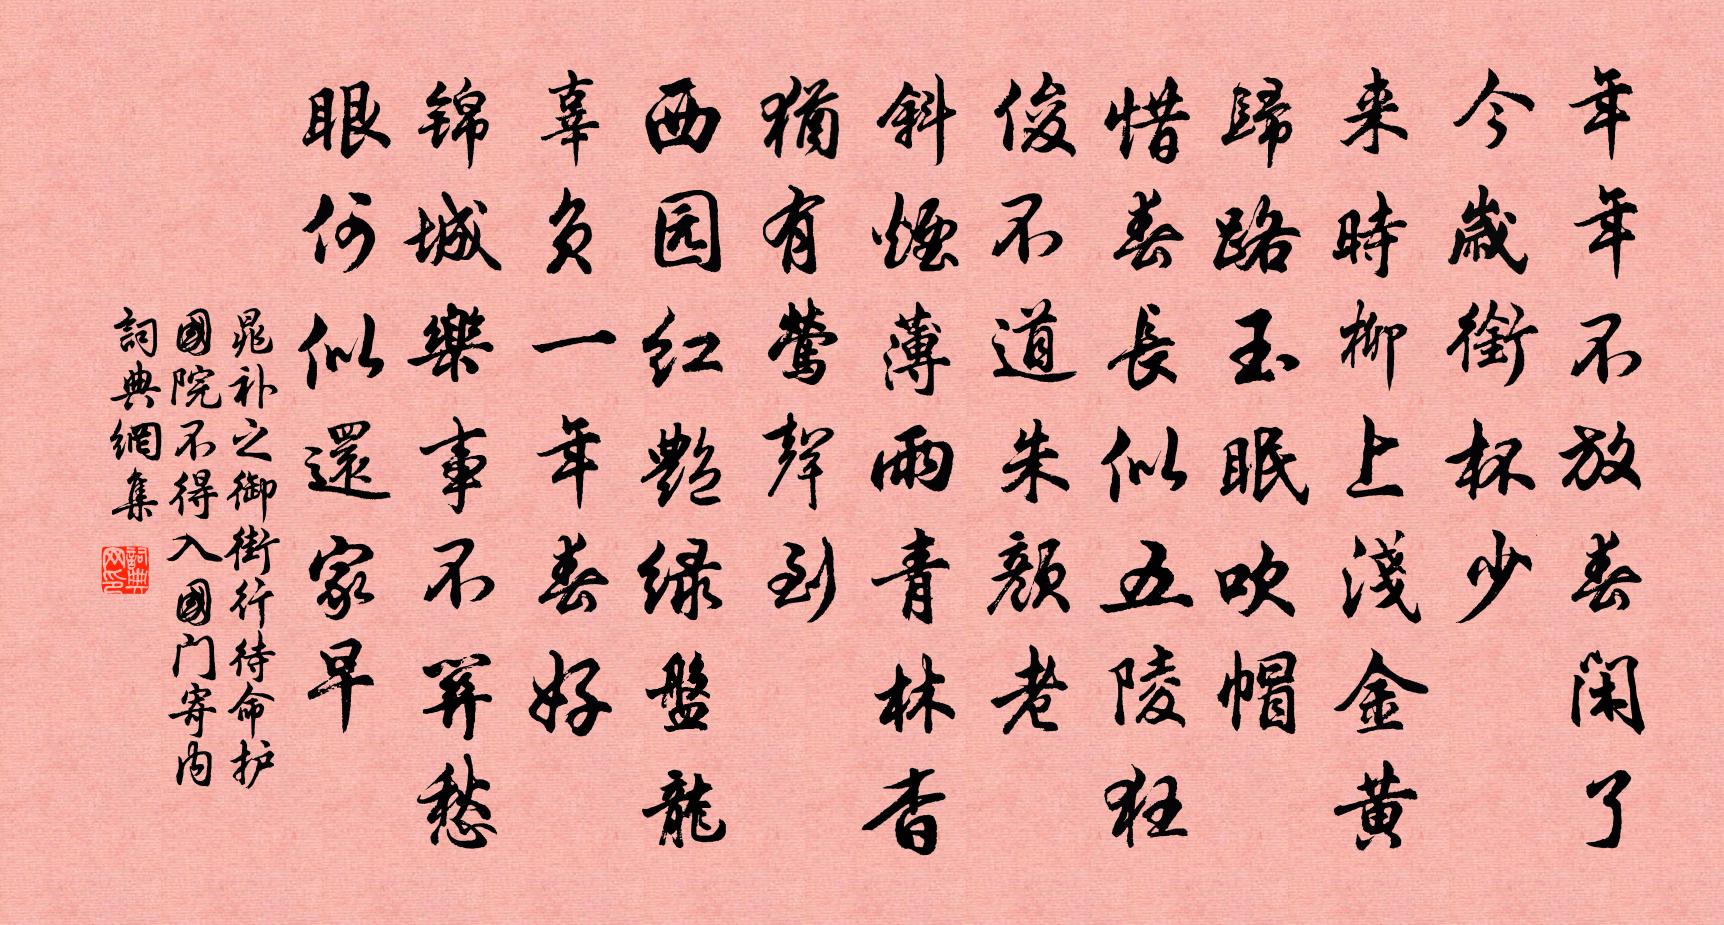 年年不放春闲了
今歲銜杯少
来時柳上淺金黄
歸路玉眠吹帽
惜春長似五陵狂
俊不道朱颜老
斜煙薄雨青林杳
猶有莺聲到
西园红艷绿盤龍
辜负一年春好
锦城樂事不関愁
眼何似還家早
晁补之御街行待命护
國院不得入國门寄内
詞典網集
詞典网印